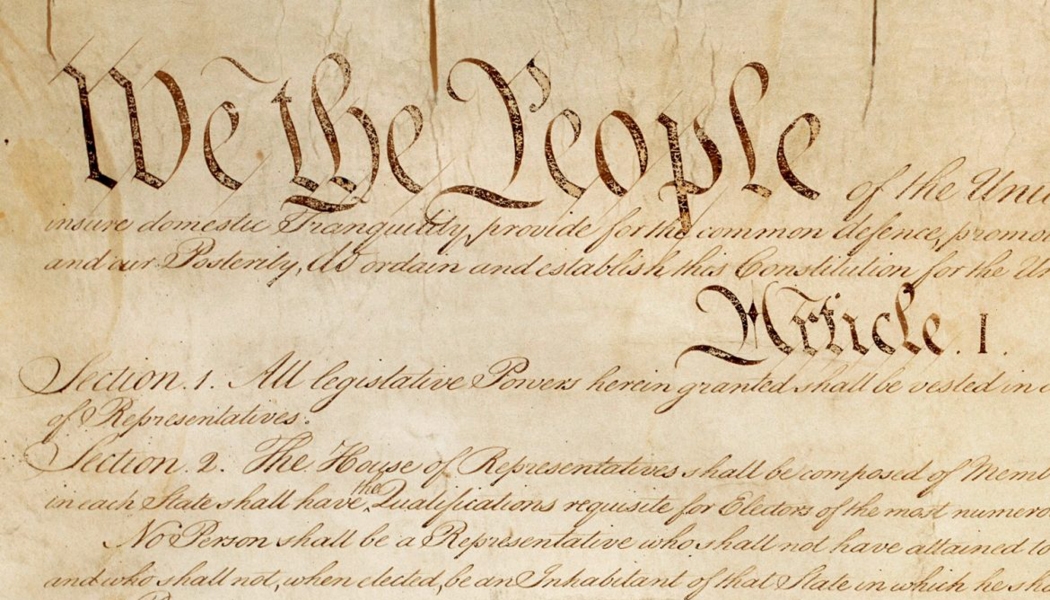 We the People of the Uni
insure domestic Tranquility, provide for the common defence, promo
and our Posterity, do ordain and establish this Constitution for the Un
Article. I.
Section. 1. All legislative Powers herein granted shall be vested in a
of Representatives.
Section. 2. The House of Representatives shall be composed of Memb
in each State shall have the Qualifications requisite for Electors of the most numero
No Person shall be a Representative who shall not have attained to
and who shall not, when elected, be an Inhabitant of that State in which he sha